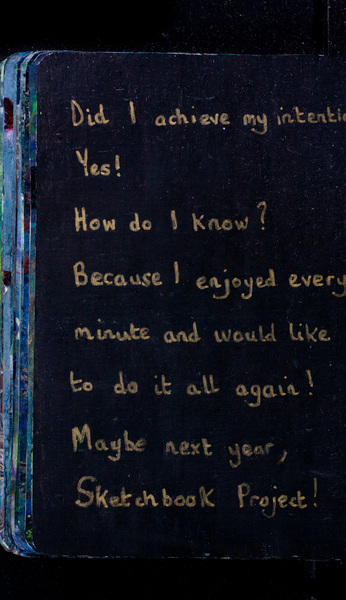 Did I achieve my intentio
Yes!
How do I know?
Because I enjoyed every
minute and would like
to do it all again!
Maybe next year,
Sketchbook Project!